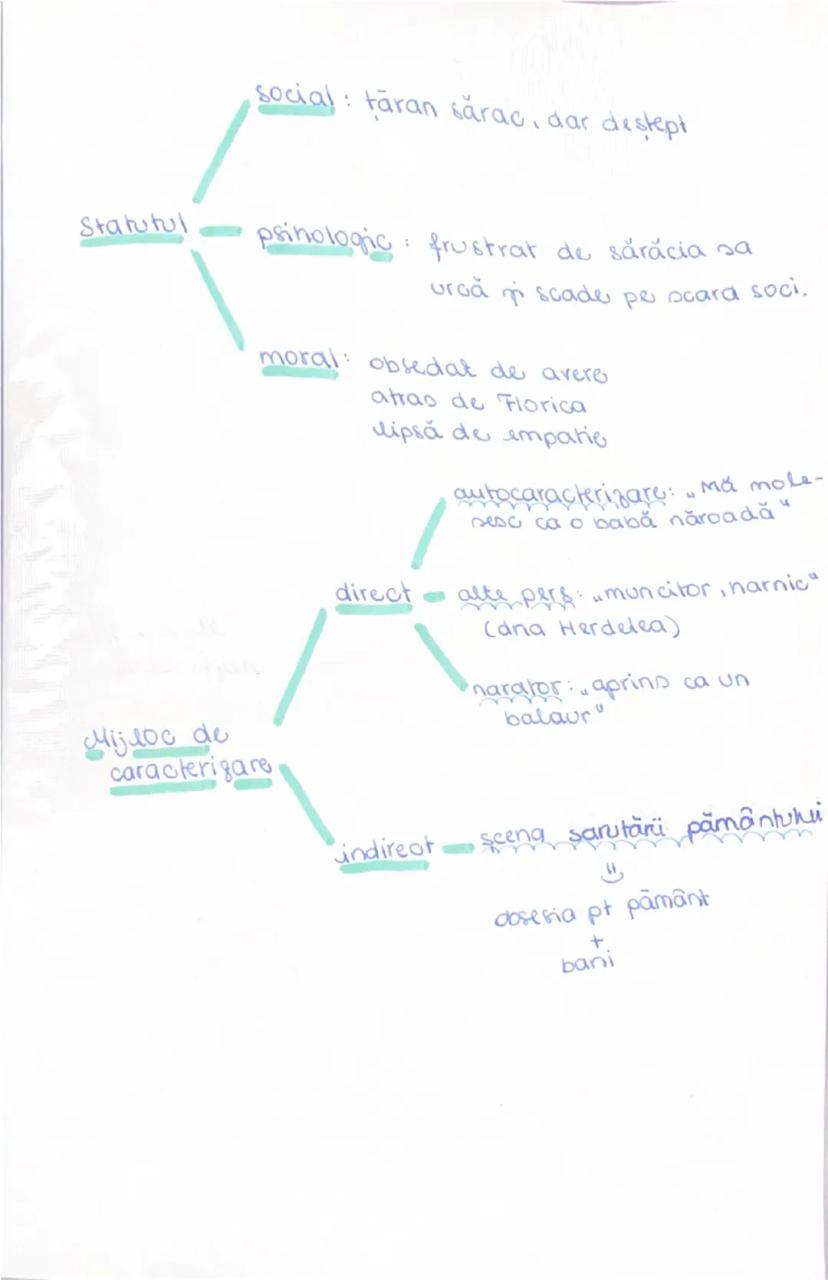 social : țăran sărac, dar deștept
Statutul
psihologic : frustrat de sărăcia sa
urcă și scade pe scara soci.
moral : obsedat de avere
atras de Florica
lipsă de empatie
autocaracterizare: „Mă mole-
sesc ca o babă năroadă"
direct
alte pers: „muncitor, harnic"
(dna Herdelea)
narator: „aprins ca un
balaur"
Mijloc de
caracterizare
indirect
scena sărutării pământului
obsesia pt pământ
+
bani